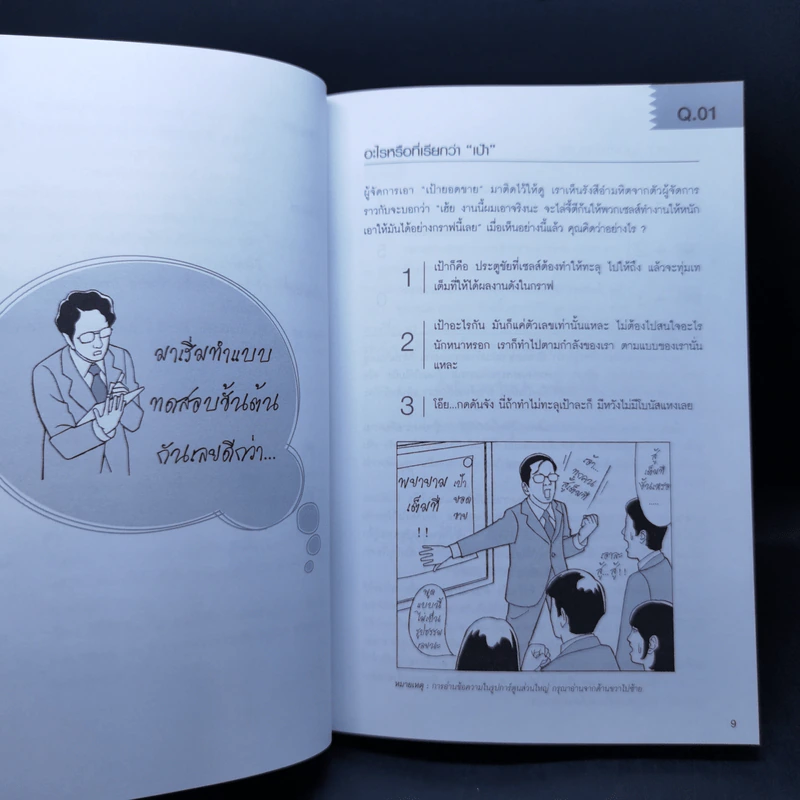 มาเริ่มทำแบบ
ทดสอบขั้นต้น
กันเลยดีกว่า...
Q.01
อะไรหรือที่เรียกว่า "เป้า"
ผู้จัดการเอา "เป้ายอดขาย" มาติดไว้ให้ดู เราเห็นรังสีอำมหิตจากตัวผู้จัดการ
ราวกับจะบอกว่า "เฮ้ย งานนี้ผมเอาจริงนะ จะไล่จี้ตีกันให้พวกเซลส์ทำงานให้หนัก
เอาให้มันได้อย่างกราฟนี้เลย" เมื่อเห็นอย่างนี้แล้ว คุณคิดว่าอย่างไร ?
1 เป้าก็คือ ประตูชัยที่เซลส์ต้องทำให้ทะลุ ไปให้ถึง แล้วจะทุ่มเท
เต็มที่ให้ได้ผลงานดังในกราฟ
2 เป้าอะไรกัน มันก็แค่ตัวเลขเท่านั้นแหละ ไม่ต้องไปสนใจอะไร
นักหนาหรอก เราก็ทำไปตามกำลังของเรา ตามแบบของเรานั่น
แหละ
3 โอ๊ย...กดดันจัง นี่ถ้าทำไม่ทะลุเป้าละก็ มีหวังไม่มีโบนัสแหงเลย
สู้
เต็มที่
เอ้า...
ทุกคน
สู้เต็มที่
เป้า
ยอด
ขาย
พยายาม
เต็มที่
!!
เอาละ
สู้...สู้!!
พูด
แบบนี้
ไม่เป็น
รูปธรรม
เลยนะ
หมายเหตุ : การอ่านข้อความในรูปการ์ตูนส่วนใหญ่ กรุณาอ่านจากด้านขวาไปซ้าย
9